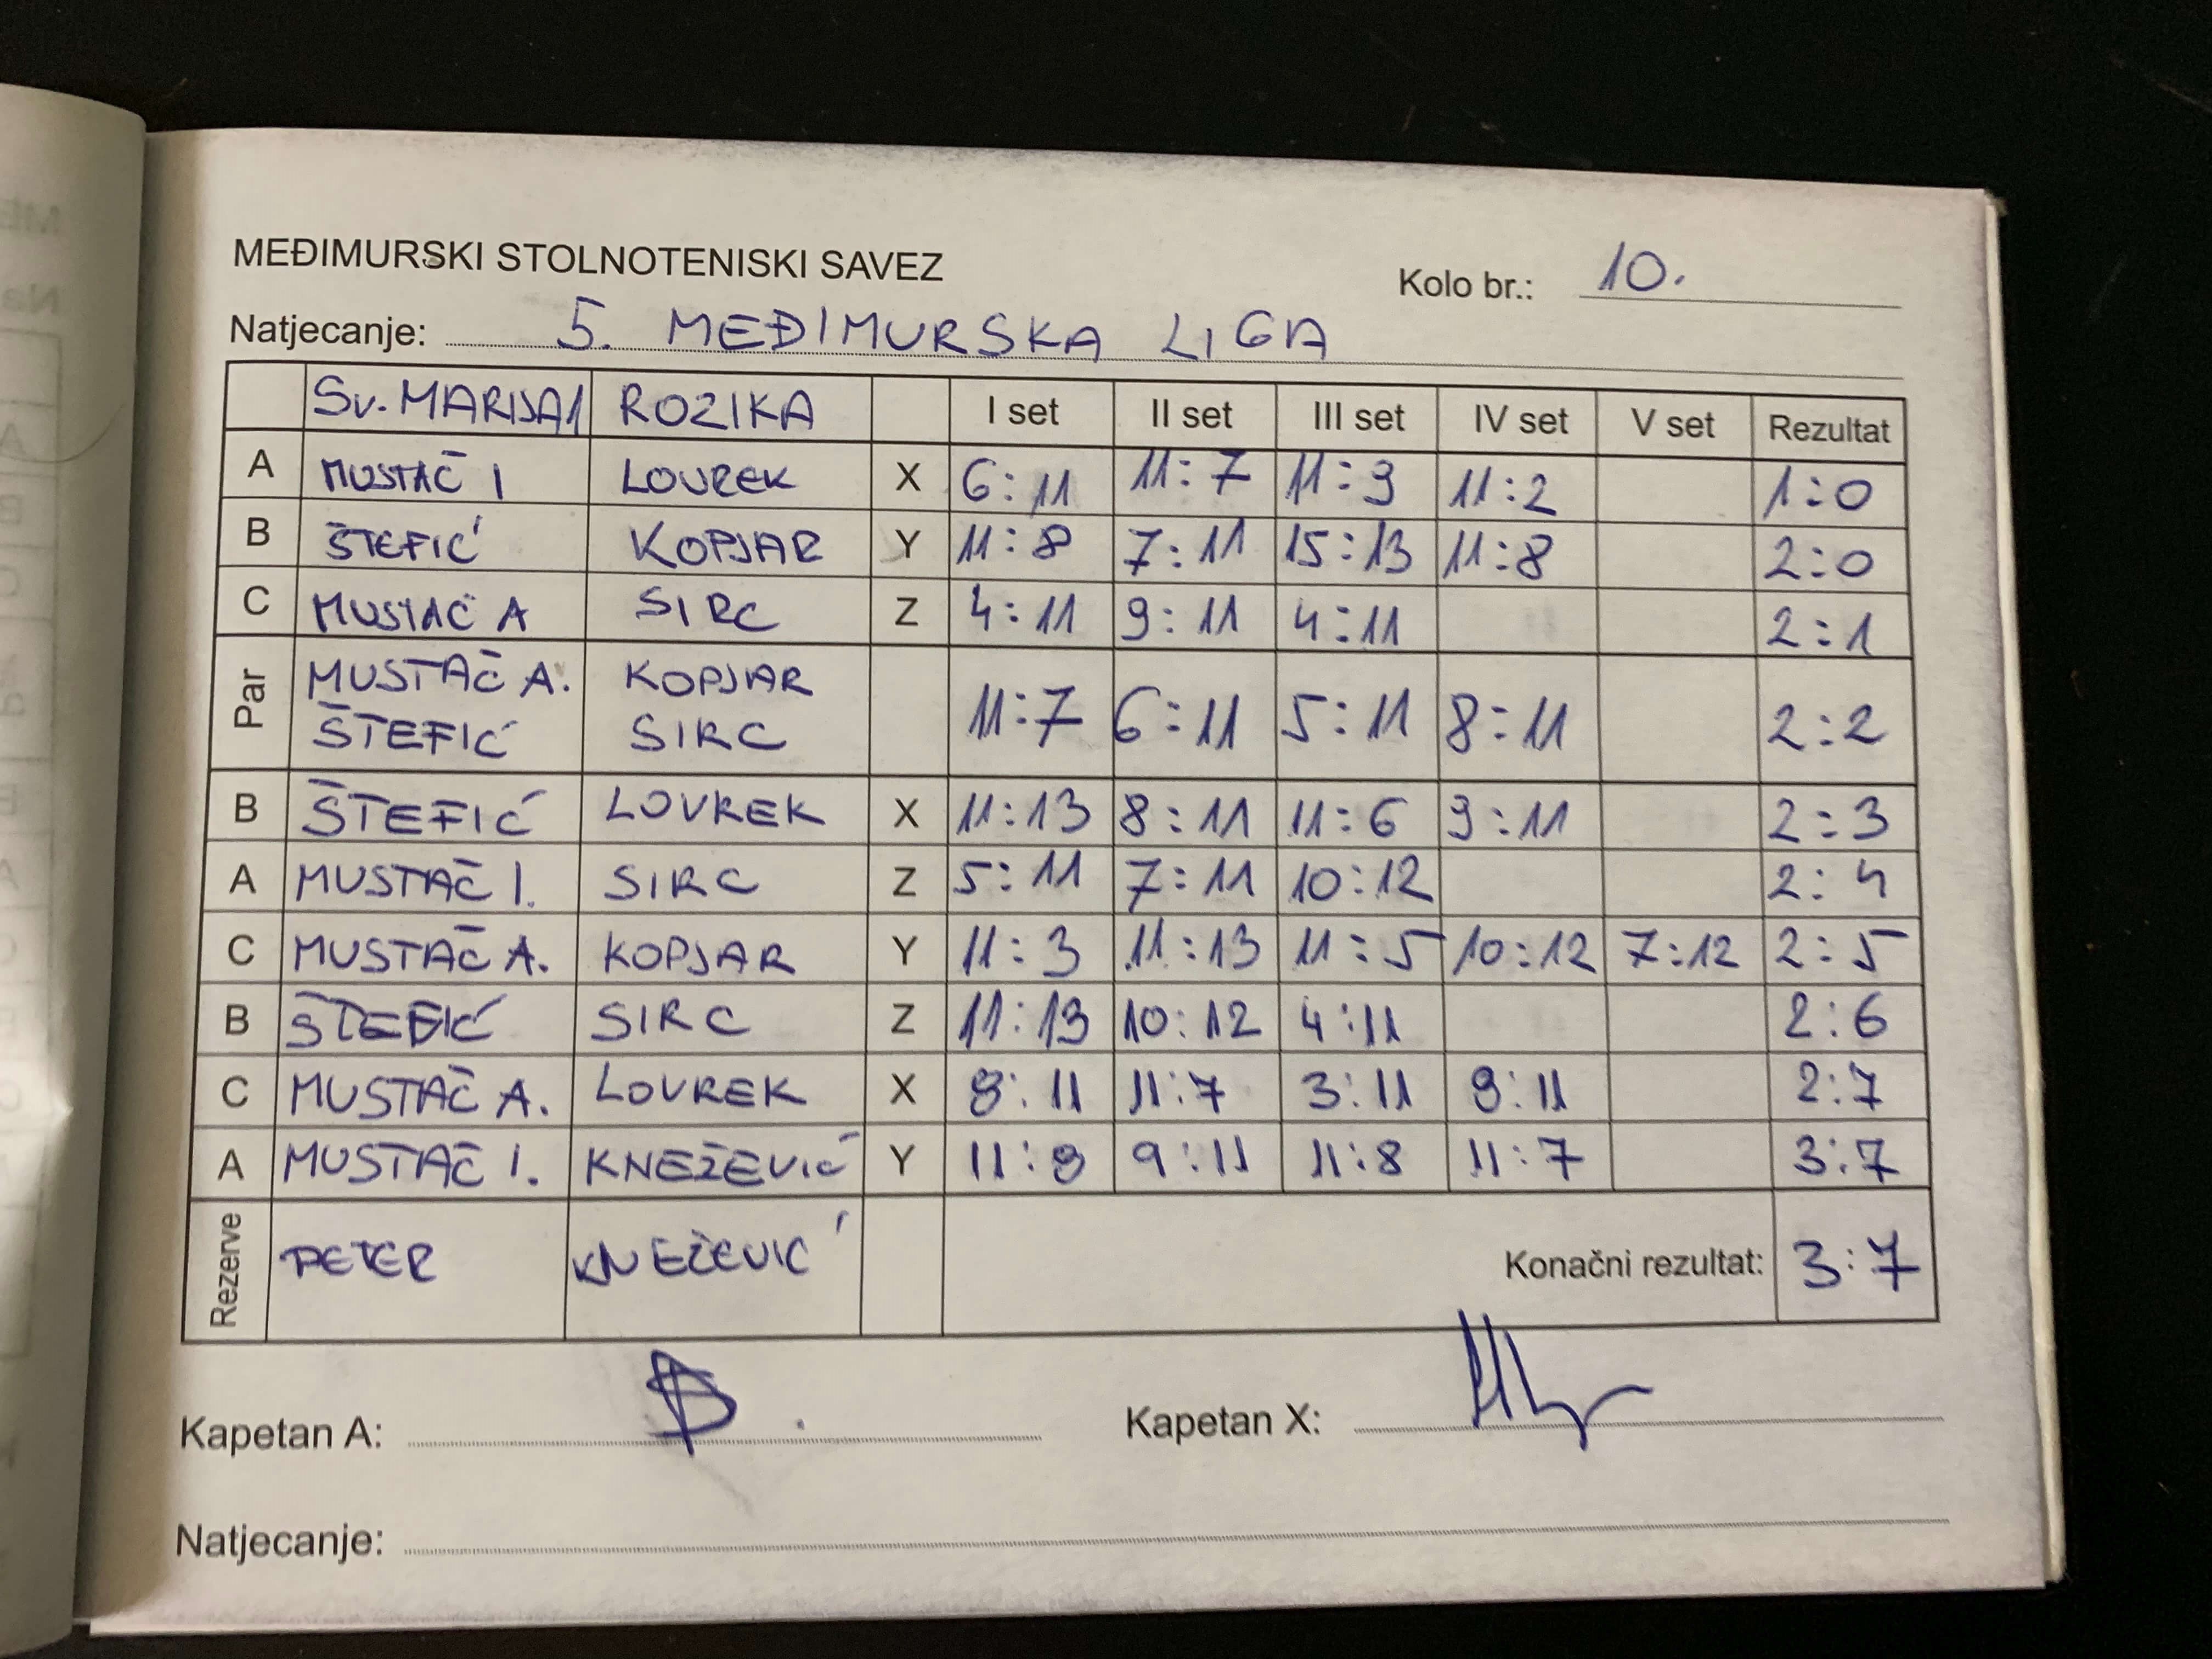 MEĐIMURSKI STOLNOTENISKI SAVEZ
Kolo br.: 10.
Natjecanje: 5. MEĐIMURSKA LIGA
Sv. MARIJA 1 ROZIKA I set II set III set IV set V set Rezultat
A MUSTAČ I LOVREK X 6:11 11:7 11:9 11:2 1:0
B ŠTEFIĆ KOPJAR Y 11:8 7:11 15:13 11:8 2:0
C MUSTAČ A SIRC Z 4:11 9:11 4:11 2:1
Par MUSTAČ A. KOPJAR
ŠTEFIĆ SIRC 11:7 6:11 5:11 8:11 2:2
B ŠTEFIĆ LOVREK X 11:13 8:11 11:6 9:11 2:3
A MUSTAČ I. SIRC Z 5:11 7:11 10:12 2:4
C MUSTAČ A. KOPJAR Y 11:3 11:13 11:5 10:12 7:12 2:5
B ŠTEFIĆ SIRC Z 11:13 10:12 4:11 2:6
C MUSTAČ A. LOVREK X 9:11 11:7 3:11 9:11 2:7
A MUSTAČ I. KNEŽEVIĆ Y 11:9 9:11 11:8 11:7 3:7
Rezerve PETER KNEŽEVIĆ Konačni rezultat: 3:7
Kapetan A: Kapetan X:
Natjecanje: